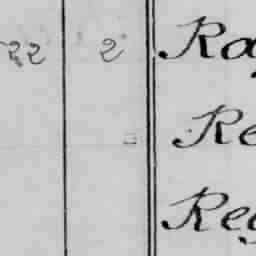 22 2 Ra
Re
Reg